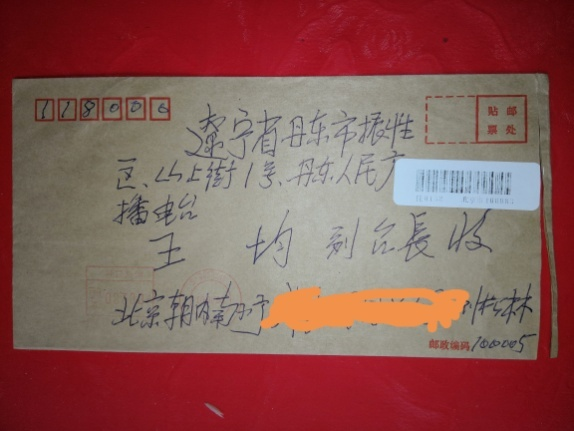 118006
贴邮
票处
辽宁省丹东市振性
区、山上街1号、丹东人民广
播电台
王 均 副台長 收
北京朝内
林
邮政编码 100005